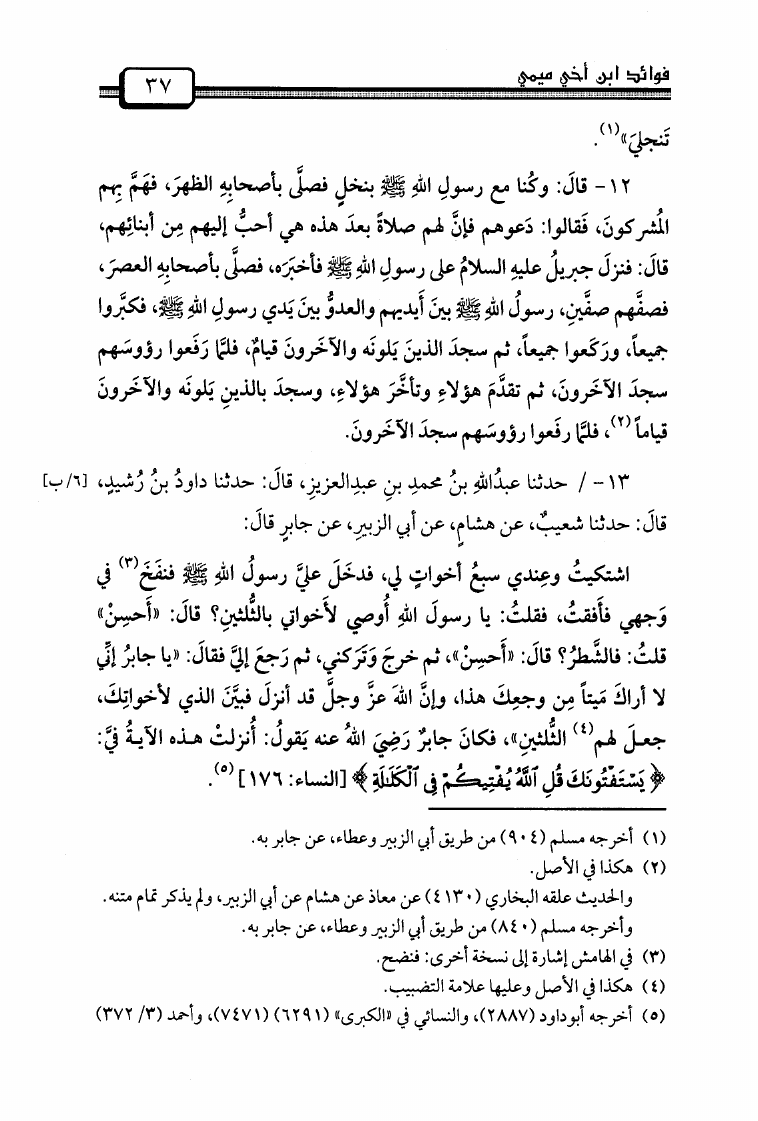 فوائد ابن أخي ميمي
٣٧
تَنجليَ»(١).
١٢- قالَ: وكُنا مع رسولِ اللهِ ﷺ بنخلٍ فصلَّى بأصحابِهِ الظهرَ، فهَمَّ بِهم
المُشركونَ، فَقالوا: دَعوهم فإنَّ لهم صلاةً بعدَ هذه هي أحبُّ إليهم مِن أبنائِهم،
قالَ: فنزلَ جبريلُ عليهِ السلامُ على رسولِ اللهِ ﷺ فأخبَرَه، فصلَّى بأصحابِهِ العصرَ،
فصفَّهم صفَّينِ، رسولُ اللهِ ﷺ بينَ أَيديهم والعدوُّ بينَ يَدي رسولِ اللهِ ﷺ، فكبَّروا
جميعاً، ورَكَعوا جميعاً، ثم سجدَ الذينَ يَلونَه والآخَرونَ قيامٌ، فلمَّا رَفَعوا رؤوسَهم
سجدَ الآخَرونَ، ثم تقدَّمَ هؤلاءِ وتأخَّرَ هؤلاءِ، وسجدَ بالذينِ يَلونَه والآخَرونَ
قياماً(٢)، فلمَّا رفَعوا رؤوسَهم سجدَ الآخَرونَ.
١٣- / حدثنا عبدُاللهِ بنُ محمدِ بنِ عبدِالعزيزِ، قالَ: حدثنا داودُ بنُ رُشيدٍ، [٦/ب]
قالَ: حدثنا شعيبٌ، عن هشامٍ، عن أبي الزبيرِ، عن جابرٍ قالَ:
اشتكيتُ وعِندي سبعُ أخواتٍ لي، فدخَلَ عليَّ رسولُ اللهِ ﷺ فنفَخَ(٣) في
وَجهي فأَفقتُ، فقلتُ: يا رسولَ اللهِ أُوصي لأخواتي بالثُّلثينِ؟ قالَ: «أَحسِنْ»
قلتُ: فالشَّطرُ؟ قالَ: «أَحسِنْ»، ثم خرجَ وَتَركني، ثم رَجعَ إليَّ فقالَ: «يا جابرُ إنِّي
لا أراكَ مَيتاً مِن وجعِكَ هذا، وإنَّ اللهَ عزَّ وجلَّ قد أنزلَ فبيَّنَ الذي لأخواتِكَ،
جعلَ لهم(٤) الثُّلثينِ»، فكانَ جابرٌ رَضِيَ اللهُ عنه يَقولُ: أُنزلتْ هذه الآيةُ فيَّ:
﴿ يَسْتَفْتُونَكَ قُلِ ٱللَّهُ يُفْتِيكُمْ فِي ٱلْكَلَٰلَةِ ﴾ [النساء: ١٧٦](٥).
(١) أخرجه مسلم (٩٠٤) من طريق أبي الزبير وعطاء، عن جابر به.
(٢) هكذا في الأصل.
والحديث علقه البخاري (٤١٣٠) عن معاذ عن هشام عن أبي الزبير، ولم يذكر تمام متنه.
وأخرجه مسلم (٨٤٠) من طريق أبي الزبير وعطاء، عن جابر به.
(٣) في الهامش إشارة إلى نسخة أخرى: فنضح.
(٤) هكذا في الأصل وعليها علامة التضبيب.
(٥) أخرجه أبوداود (٢٨٨٧)، والنسائي في «الكبرى» (٦٢٩١) (٧٤٧١)، وأحمد (٣/ ٣٧٢)